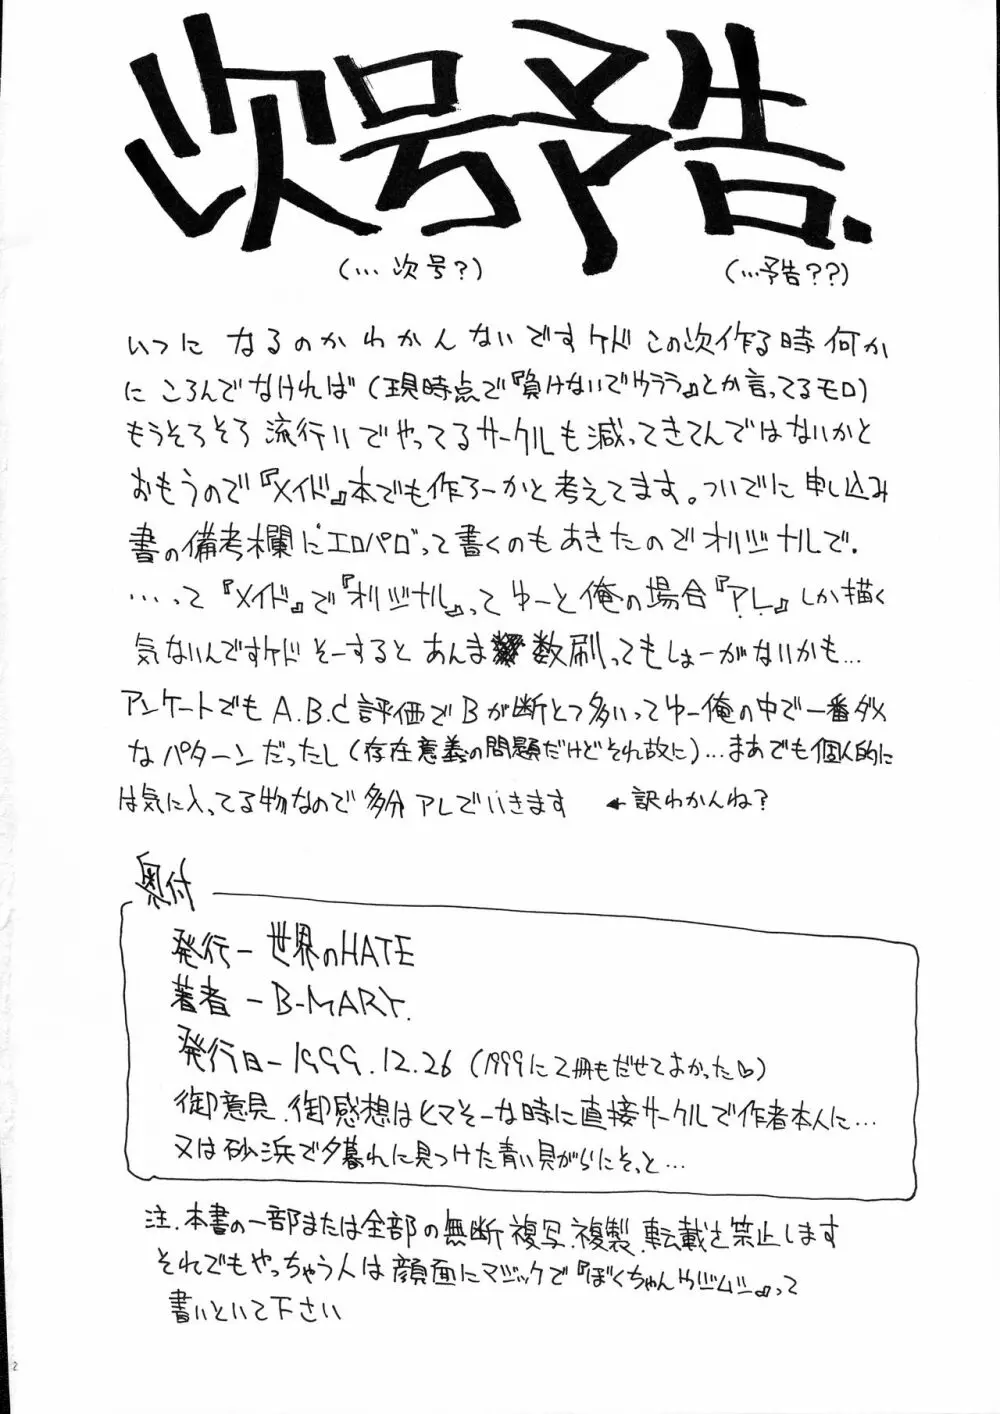 次号予告.
(… 次号?)
(…予告??)
いつに なるのかわかんないですケド この次作る時 何か
に ころんでなければ (現時点で『負けないでウララ』とか言ってるモロ)
もうそろそろ 流行りでやってるサークルも減ってきてんではないかと
おもうので『メイド』本でも作ろーかと考えてます。ついでに申し込み
書の備考欄にエロパロって書くのもあきたのでオリジナルで.
…って『メイド』で『オリジナル』ってゆーと俺の場合『アレ』しか描く
気ないんですケド そーすると あんま 数刷ってもしょーがないかも…
アンケートでも A.B.C評価でBが断とつ多いってゆー俺の中で一番ダメ
なパターンだったし (存在意義の問題だけどそれ故に)…まあでも個人的に
は気に入ってる物なので 多分 アレでいきます ←訳わかんね?
奥付
発行ー 世界のHATE
著者 ーB-MARY.
発行日ー1999.12.26 (1999に2冊もだせてよかった♡)
御意見.御感想はヒマそーな時に直接サークルで作者本人に…
又は砂浜で夕暮れに見つけた青い貝がらにそっと…
注.本書の一部または全部の無断 複写.複製.転載を禁止します
それでもやっちゃう人は顔面にマジックで『ぼくちゃん
』って
書いといて下さい
2